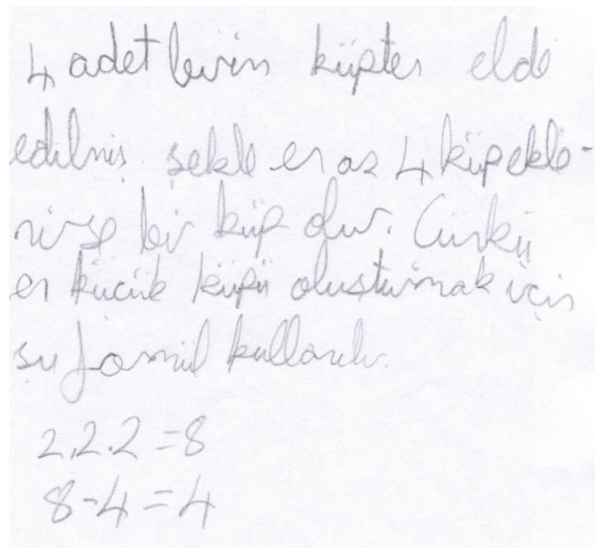 4 adet birim küpten elde
edilmiş şekle en az 4 küp ekle-
nirse bir küp olur. Çünkü
en küçük küpü oluşturmak için
şu formül kullanılır.
2.2.2=8
8-4=4